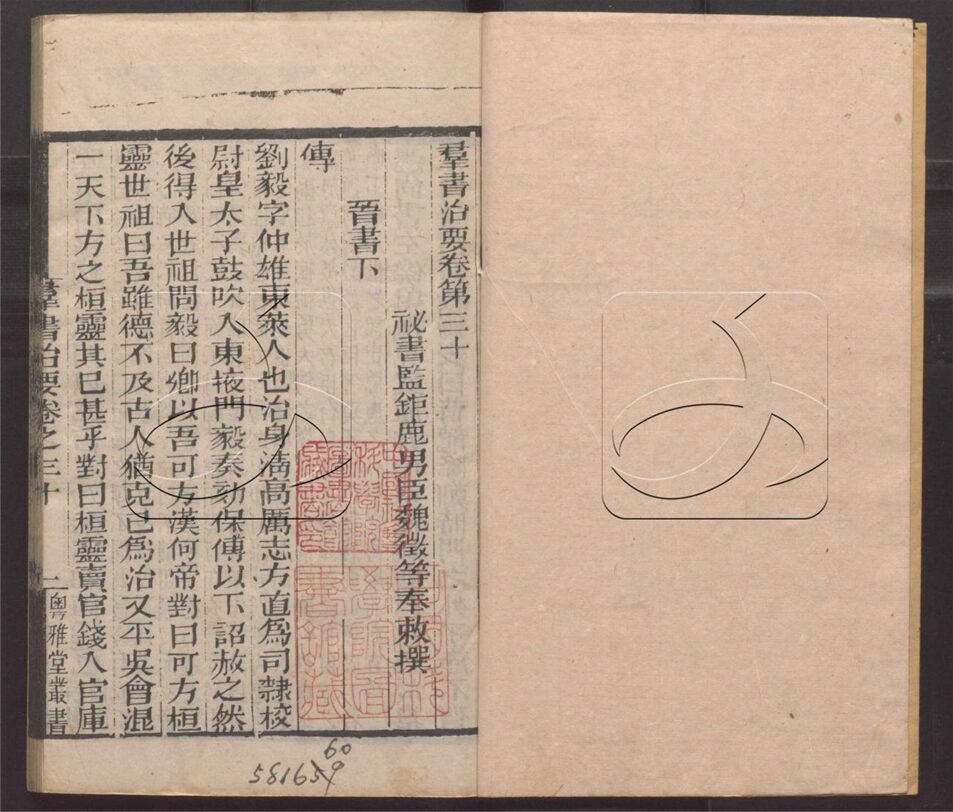 羣書治要卷第三十
祕書監鉅鹿男臣魏徵等奉敕撰
晉書下
傳
劉毅字仲雄東萊人也治身清高厲志方直爲司隸校
尉皇太子鼓吹入東掖門毅奏劾保傅以下詔赦之然
後得入世祖問毅曰卿以吾可方漢何帝對曰可方桓
靈世祖曰吾雖德不及古人猶克己爲治又平吳會混
一天下方之桓靈其已甚乎對曰桓靈賣官錢入官庫
羣書治要卷之三十
一
粵雅堂叢書
60
581659